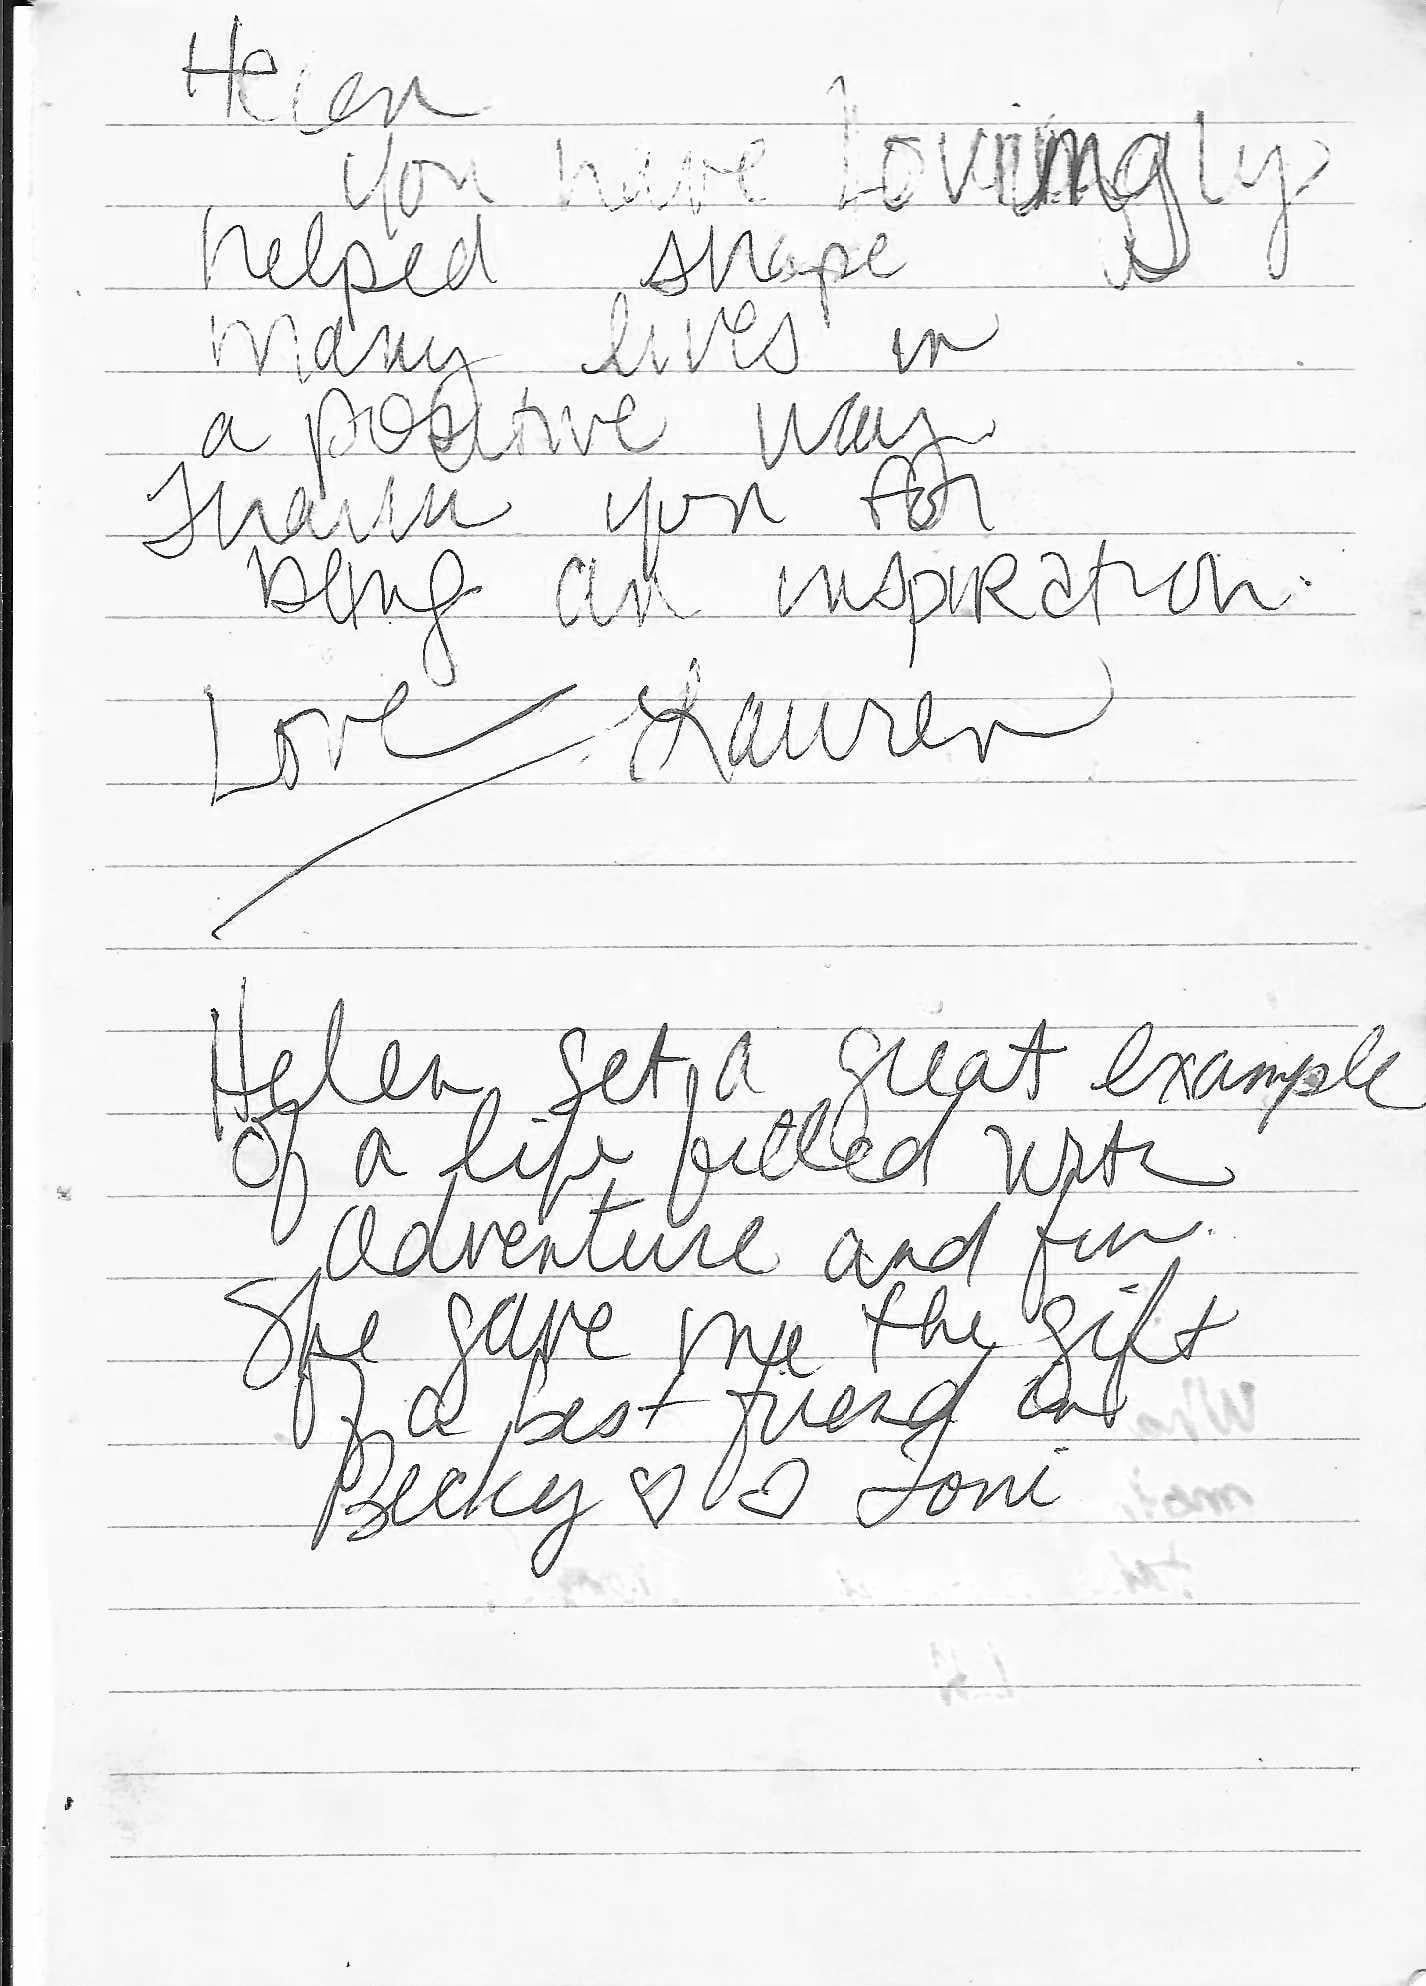 Helen
you have Lovingly
helped shape
many lives in
a positive way.
Thank you for
being an inspiration.
Love Lauren
Helen set a great example
of a life filled with
adventure and fun.
She gave me the gift
of a best friend in
Becky ♡ ♡ Toni